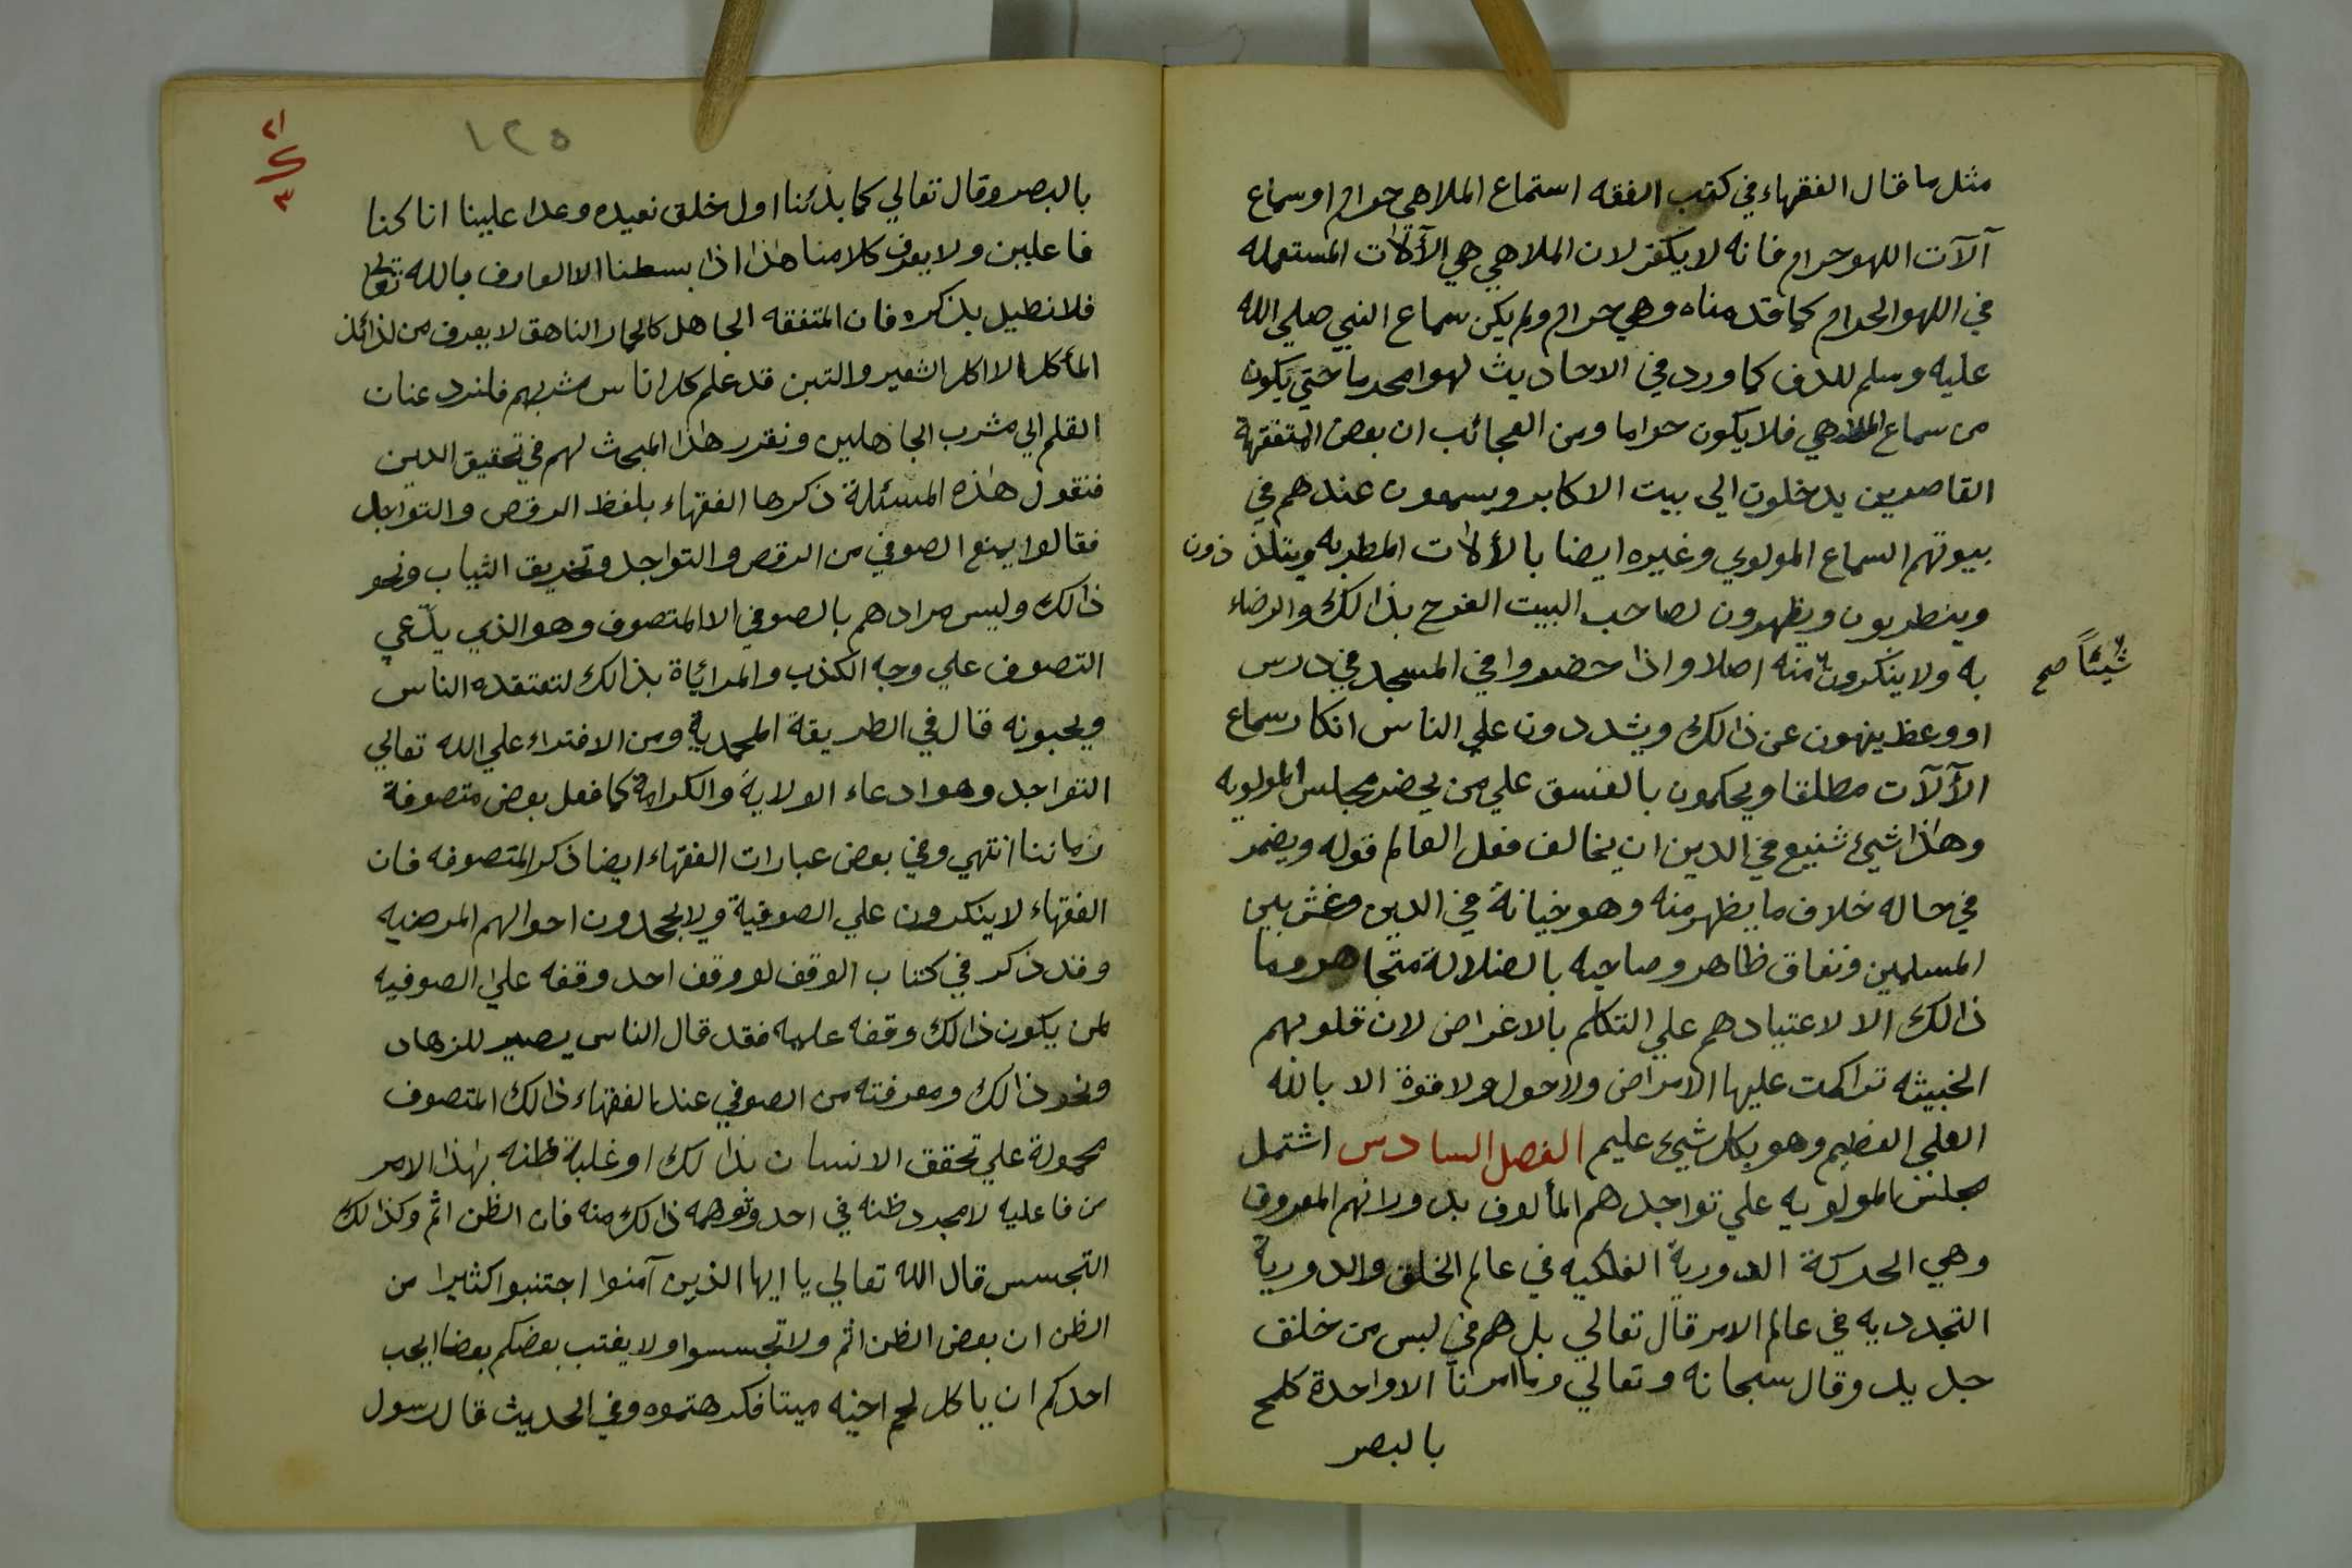 مثل ما قال الفقهاء في كتب الفقه استماع الملاهي حرام او سماع
آلآت اللهو حرام فانه لا يكفر لان الملاهي هي الآلات المستعمله
في اللهو الحرام كما قدمناه وهي حرام ولم يكن سماع النبي صلي الله
عليه وسلم للدف كما ورد في الاحاديث لهوا محرما حتي يكون
من سماع الملاهي فلا يكون حراما ومن العجائب ان بعض المتفقهة
القاصرين يدخلون الي بيت الاكابر ويسمعون عندهم في
بيوتهم السماع المولوي وغيره ايضا بالألات المطربه ويتلذذون
وينطربون ويظهرون لصاحب البيت الفرح بذالك والرضاء
به ولا ينكرون منه اصلا واذا حضروا في المسجد في درس
شيئاً صح
او وعظ ينهون عن ذالك ويشددون علي الناس انكار سماع
الآلآت مطلقا ويحكمون بالفسق علي من يحضر مجلس المولويه
وهاذا شيئ شنيع في الدين ان يخالف فعل العالم قوله ويضمر
في حاله خلاف ما يظهر منه وهو خيانة في الدين وغش بين
المسلمين ونفاق ظاهر وصاحبه بالضلالة متجاهر وما
ذالك الا لاعتيادهم علي التكلم بالاغراض لان قلوبهم
الخبيثه تراكمت عليها الامراض ولا حول ولا قوة الا بالله
العلي العظيم وهو بكل شيئ عليم الفصل السادس اشتمل
مجلس المولويه علي تواجدهم المألوف بدورانهم المعروف
وهي الحركة الدورية الفلكيه في عالم الخلق والدورية
التجدديه في عالم الامر قال تعالي بل هم في لبس من خلق
جديد وقال سبحانه وتعالي وما امرنا الا واحدة كلمح
بالبصر
١٢٥
٢١
٣
بالبصر وقال تعالي كما بدئنا اول خلق نعيده وعدا علينا انا كنا
فاعلين ولا يعرف كلامنا هاذا اذا بسطنا الا العارف بالله تعالي
فلا نطيل بذكره فان المتفقه الجاهل كالحمار الناهق لا يعرف من لذائذ
المأكل الا اكل الشعير والتبن قد علم كل اناس مشربهم فلنرد عنان
القلم الي مشرب الجاهلين ونقرر هاذا المبحث لهم في تحقيق الدين
فنقول هاذه المسئلة ذكرها الفقهاء بلفظ الرقص والتواجد
فقالوا يمنع الصوفي من الرقص والتواجد وتخريق الثياب ونحو
ذالك وليس مرادهم بالصوفي الا المتصوف وهو الذي يدّعي
التصوف علي وجه الكذب والمرائاة بذالك لتعتقده الناس
ويحبونه قال في الطريقة المحمدية ومن الافتراء علي الله تعالي
التواجد وهو ادعاء الولاية والكرامة كما فعل بعض متصوفة
زماننا انتهي وفي بعض عبارات الفقهاء ايضا ذكر المتصوفه فان
الفقهاء لا ينكرون علي الصوفية ولا يجحدون احوالهم المرضيه
وقد ذكر في كتاب الوقف لو وقف احد وقفه علي الصوفيه
لمن يكون ذالك وقفه عليه فقد قال الناس يصير للزهاد
ونحو ذالك ومعرفته من الصوفي عند الفقهاء ذالك المتصوف
محمولة علي تحقق الانسان بذالك او غلبة ظنه بهاذا الامر
من فاعليه لا مجرد ظنه في احد وتوهمه ذالك منه فان الظن اثم وكذالك
التجسس قال الله تعالي يا ايها الذين آمنوا اجتنبوا كثيرا من
الظن ان بعض الظن اثم ولا تجسسوا ولا يغتب بعضكم بعضا ايحب
احدكم ان ياكل لحم اخيه ميتا فكرهتموه وفي الحديث قال رسول